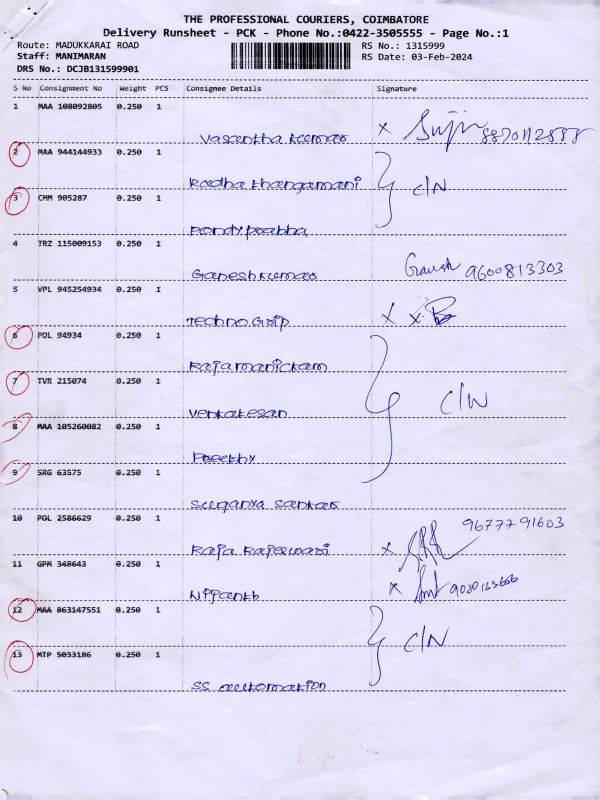 THE PROFESSIONAL COURIERS, COIMBATORE
Delivery Runsheet - PCK - Phone No.:0422-3505555 - Page No.:1
Route: MADUKKARAI ROAD RS No.: 1315999
Staff: MANIMARAN RS Date: 03-Feb-2024
DRS No.: DCJB131599901
S No Consignment No Weight PCS Consignee Details Signature
1 MAA 108092805 0.250 1
Vasantha kumar x 8870112888
2 MAA 944144933 0.250 1
Radha thangamani C/N
3 CHM 905287 0.250 1
Pandy prabha
4 TRZ 115009153 0.250 1
Ganesh kumar Ganesh 9600813303
5 VPL 945254934 0.250 1
Techno Grip x x
6 POL 94934 0.250 1
Rajamanickam
7 TVR 215074 0.250 1
Venkatesan C/N
8 MAA 105260082 0.250 1
Preethy
9 SRG 63575 0.250 1
Suganya sankar
10 POL 2586629 0.250 1 9677791603
Raja Rajeswari x
11 GPM 348643 0.250 1
x
12 MAA 863147551 0.250 1
C/N
13 MTP 5033186 0.250 1
SS automation